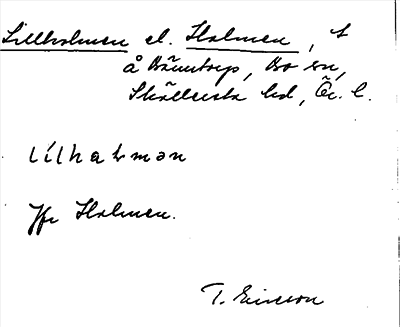 Lillholmen el. Holmen, t
å Bänntorp, Bo sn,
Skyllersta hd, Ör. l.
lilhalmən
Jfr Holmen.
T. Ericson